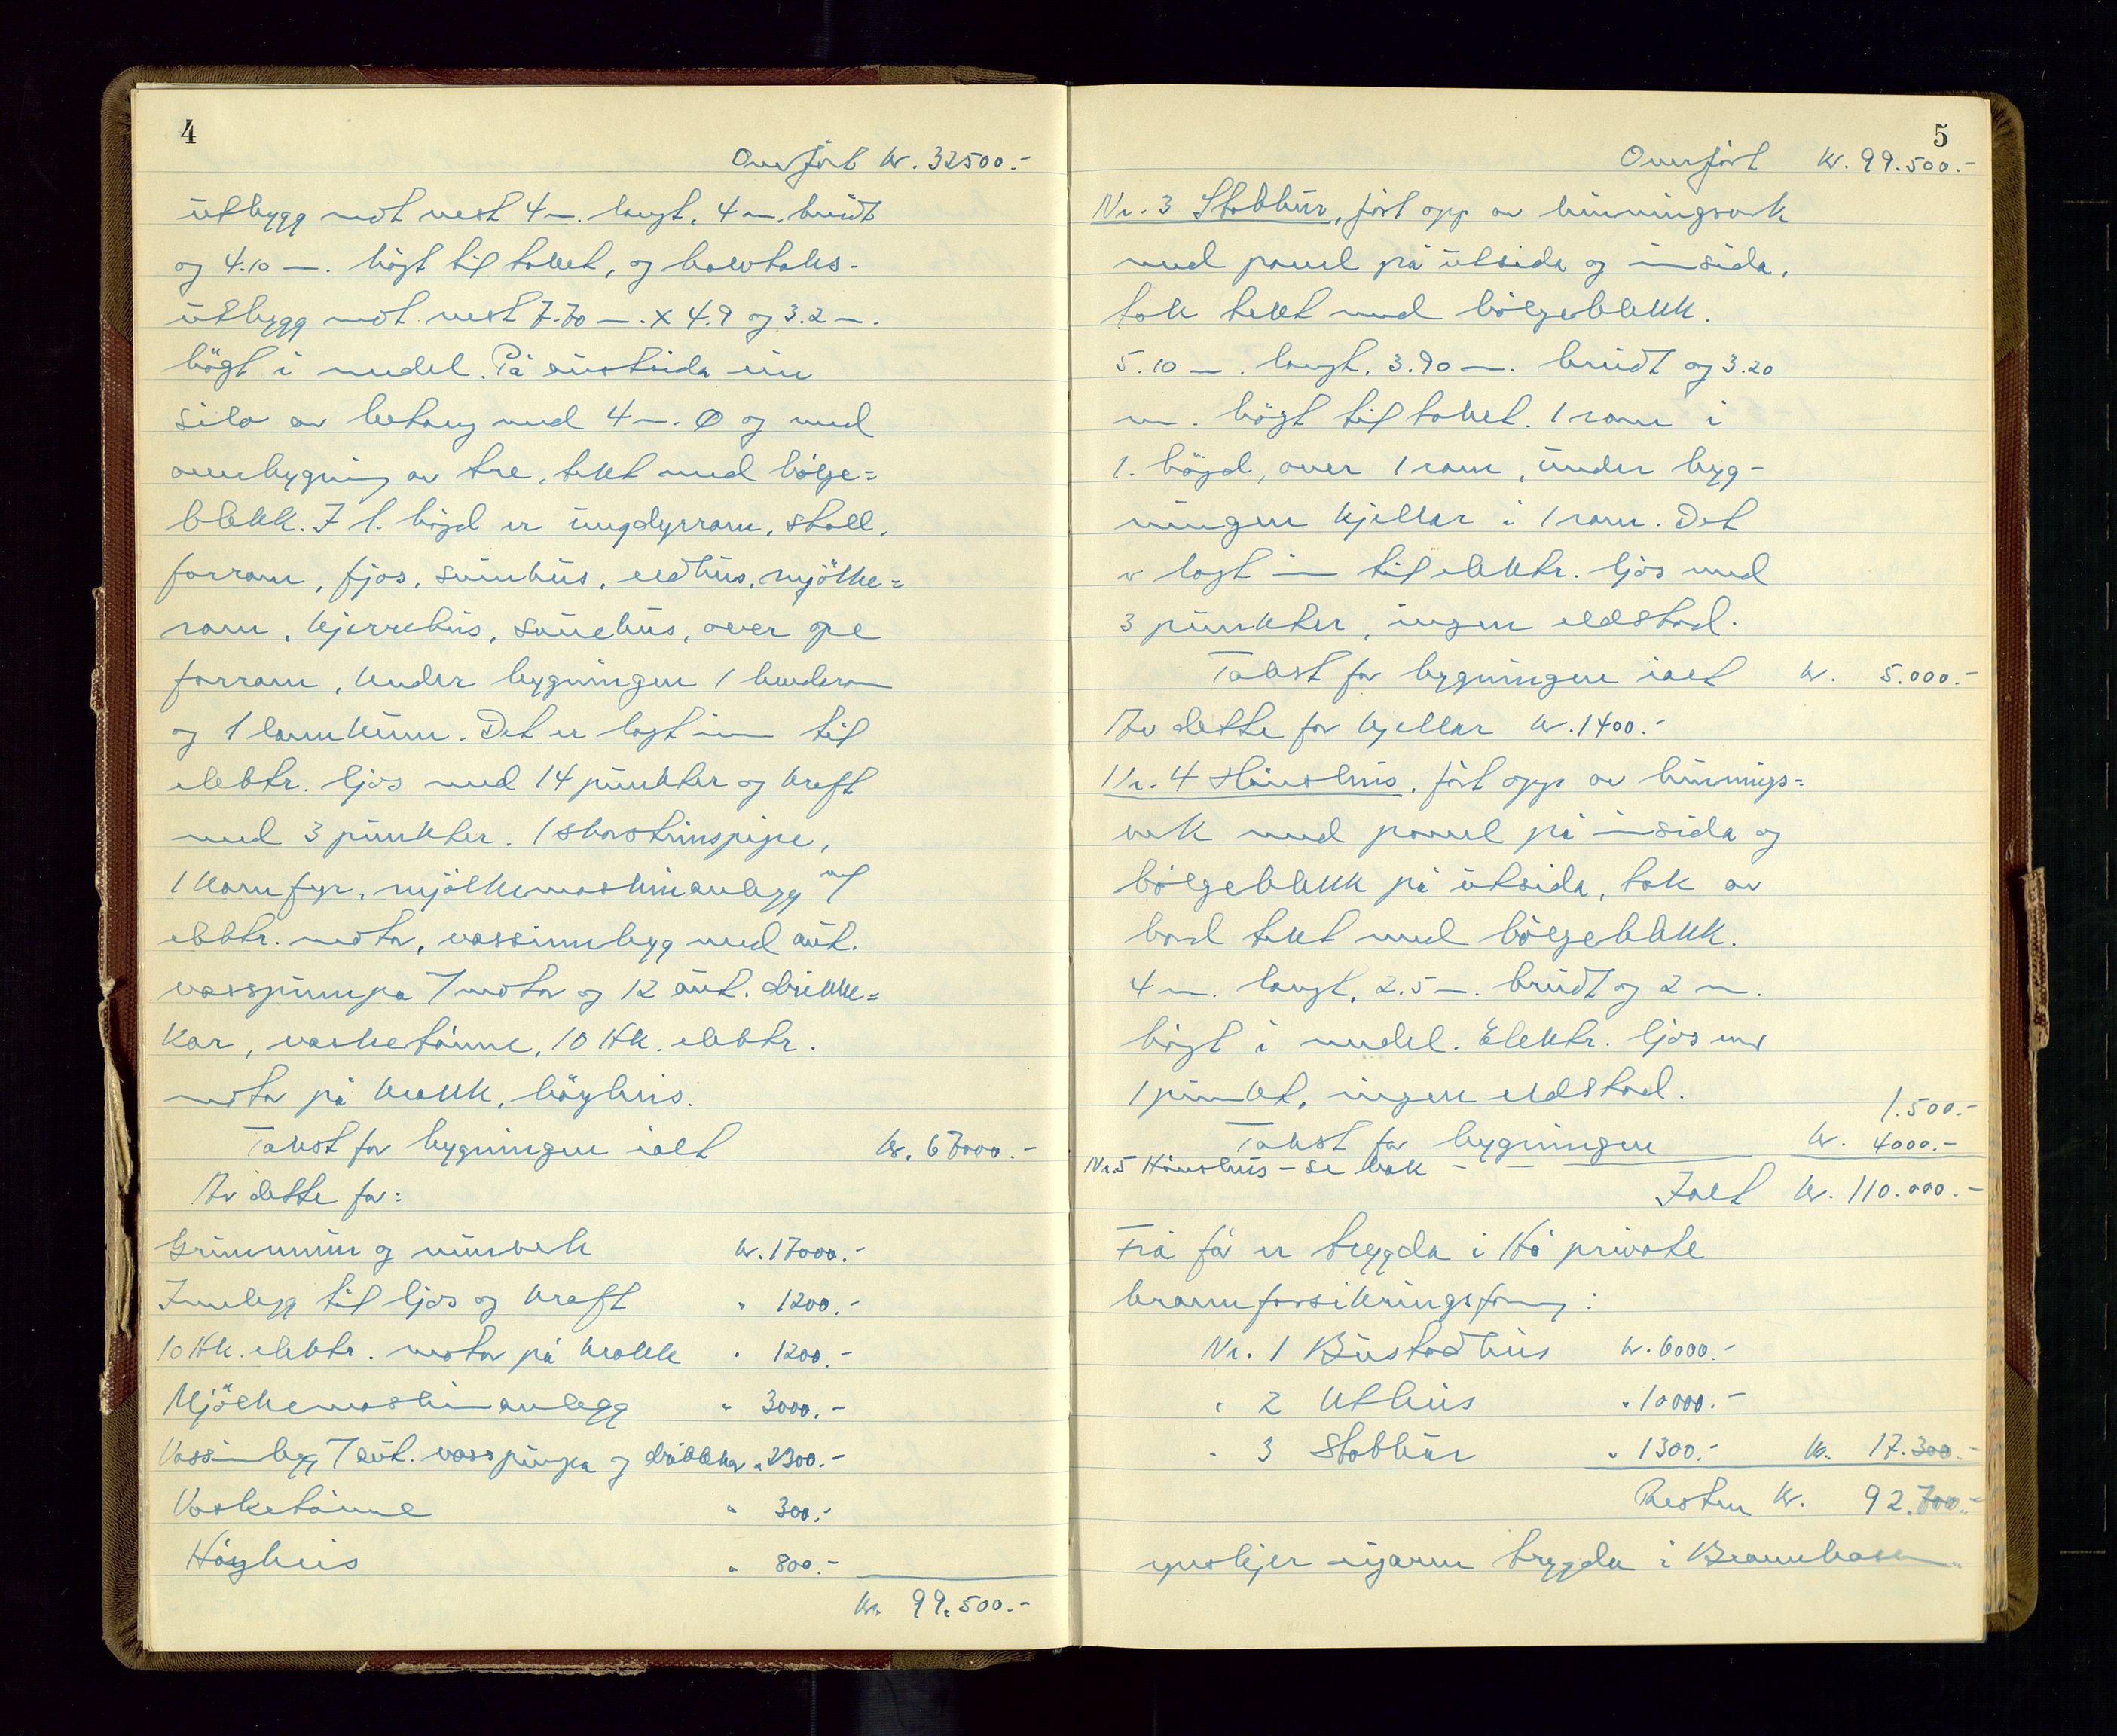 4
Overført kr. 32500.-
utbygg mot vest 4 m. langt, 4 m. breidt
og 4.10 m. høgt til taket, og halvtaks-
utbygg mot vest 7.70 m. x 4.9 og 3.2 m.
högt i medel. På austsida ein
silo av betong med 4 m. Ø og med
overbygning av tre, tekt med bölge=
blekk. I 1. högd er ungdyrrom, stall,
forrom, fjos, svinehus, eldhus, mjölke=
rom, kjerrehus, sauehus, over ope
forrom, under bygningen 1 
og 1 landkum. Det er lagt inn til
elektr. ljos med 14 punkter og kraft
med 3 punkter. 1 skorsteinspipe,
1 komfyr, mjölkemaskinanlegg m/
elektr. motor, vassinnlegg med aut.
vasspumpa m/motor og 12 aut. drikke=
kar, vasketönne, 10 Hk. elektr.
motor på krakk, höyheis.
Takst for bygningen ialt kr. 67000.-
Av dette for:
Grunnmur og murverk kr. 17000.-
Innlegg til ljos og kraft " 1200.-
10 Hk. elektr. motor på krakk " 1200.-
Mjölkemaskinanlegg " 3000.-
Vassinnlegg m/aut. vasspumpa og drikkekar " 2300.-
Vasketönne " 300.-
Höyheis " 800.-
kr. 99.500.-
5
Overført kr. 99.500.-
Nr. 3 Stabbur, fört opp av bindingsverk
med panel på utsida og innsida,
tak tekt med bölgeblekk.
5.10 m. langt, 3.90 m. breidt og 3.20
m. högt til taket. 1 rom i
1. högd, over 1 rom, under byg-
ningen kjellar i 1 rom. Det
er lagt inn til elektr. ljos med
3 punkter, ingen eldstad.
Takst for bygningen ialt kr. 5.000.-
Av dette for kjellar kr. 1400.-
Nr. 4 Hönsehus, fört opp av bindings=
verk med panel på innsida og
bölgeblekk på utsida, tak av
bord tekt med bölgeblekk.
4 m. langt, 2.5 m. breidt og 2 m.
högt i medel. Elektr. ljos med
1 punkt, ingen eldstad.
1.500.-
Takst for bygningen kr. 4000.-
Nr. 5 Hönsehus - se bak - -
Ialt kr. 110.000.-
Frå för er trygda i Hå private
brannforsikringsforening:
Nr. 1 Bustadhus kr. 6000.-
" 2 Uthus " 10000.-
" 3 Stabbur " 1300.- kr. 17.300.-
Resten kr. 92.700.-
ynskjer eigaren trygda i Brannkassen.